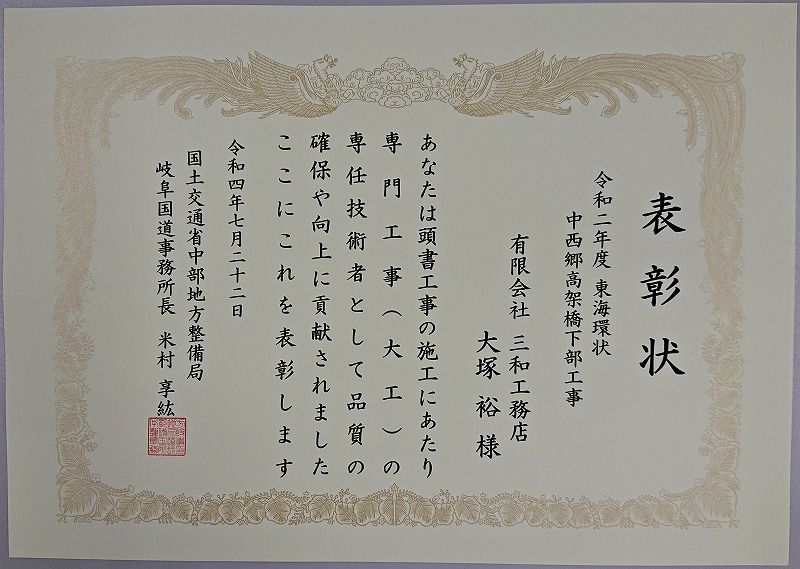 表彰状
令和二年度 東海環状
中西郷高架橋下部工事
有限会社 三和工務店
大塚 裕 様
あなたは頭書工事の施工にあたり
専門工事(大工)の
専任技術者として品質の
確保や向上に貢献されました
ここにこれを表彰します
令和四年七月二十二日
国土交通省中部地方整備局
岐阜国道事務所長 米村 享紘